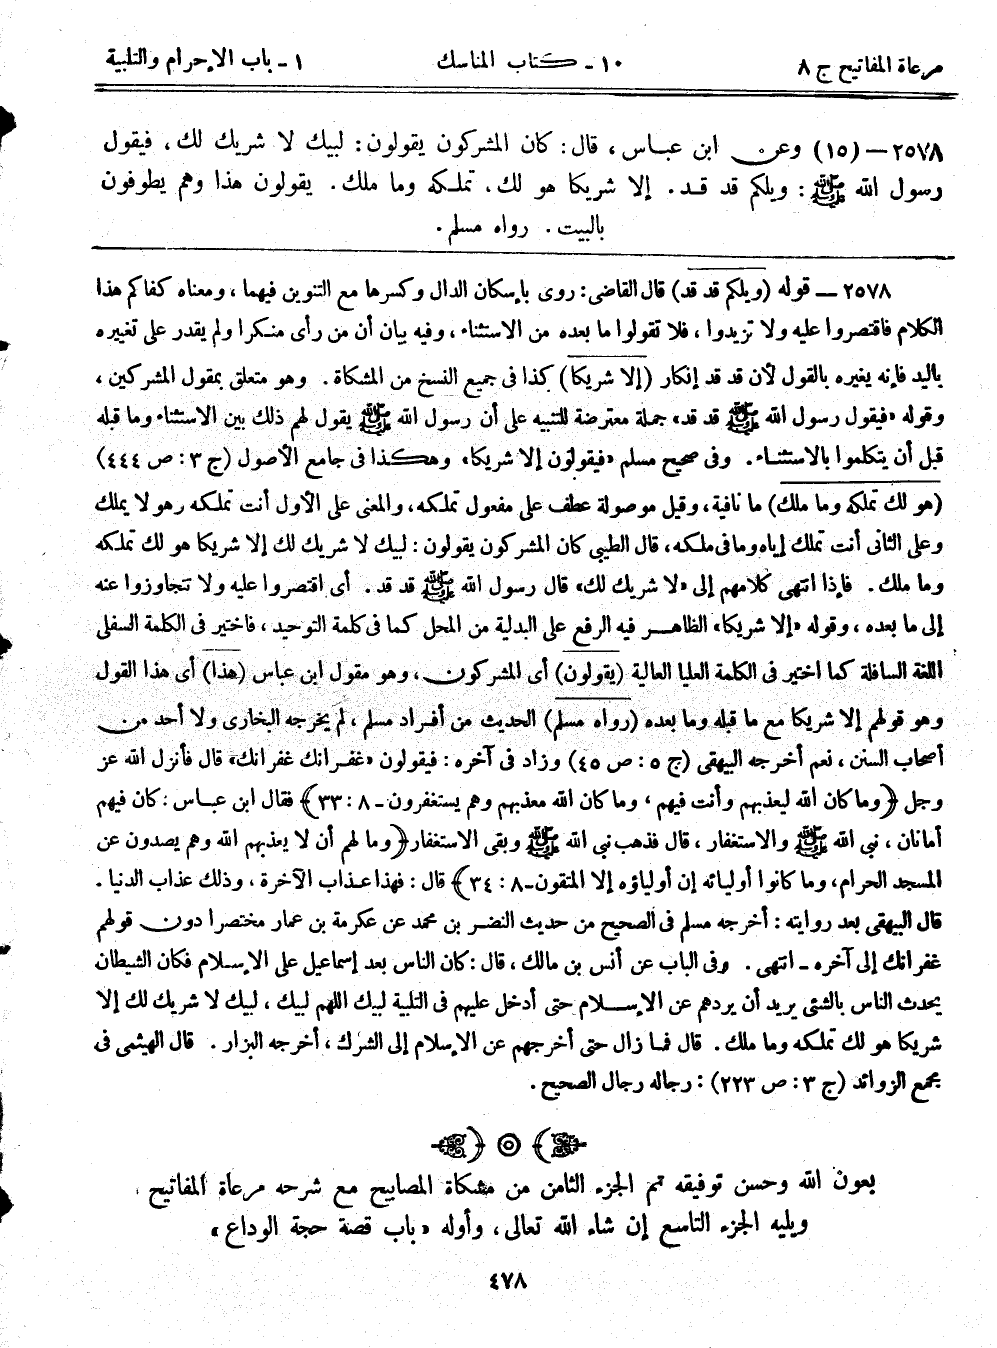 مرعاة المفاتيح ج ٨ ١٠ - كتاب المناسك ١ - باب الإحرام والتلبية
٢٥٧٨ - (١٥) وعن ابن عباس، قال: كان المشركون يقولون: لبيك لا شريك لك، فيقول
رسول الله ﷺ: ويلكم قد قد. إلا شريكا هو لك، تملكه وما ملك. يقولون هذا وهم يطوفون
بالبيت. رواه مسلم.
٢٥٧٨ - قوله (ويلكم قد قد) قال القاضى: روى بإسكان الدال وكسرها مع التنوين فيهما، ومعناه كفاكم هذا
الكلام فاقتصروا عليه ولا تزيدوا، فلا تقولوا ما بعده من الاستثناء، وفيه بيان أن من رأى منكرا ولم يقدر على تغييره
باليد فإنه يغيره بالقول لأن قد قد إنكار (إلا شريكا) كذا فى جميع النسخ من المشكاة. وهو متعلق بمقول المشركين،
وقوله «فيقول رسول الله ﷺ قد قد» جملة معترضة للتنبيه على أن رسول الله ﷺ يقول لهم ذلك بين الاستثناء وما قبله
قبل أن يتكلموا بالاستثناء. وفى صحيح مسلم «فيقولون إلا شريكا» وهكذا فى جامع الأصول (ج ٣: ص ٤٤٤)
(هو لك تملكه وما ملك) ما نافية، وقيل موصولة عطف على مفعول تملكه، والمعنى على الأول أنت تملكه وهو لا يملك
وعلى الثانى أنت تملك إياه وما فى ملكه، قال الطيبى كان المشركون يقولون: لبيك لا شريك لك إلا شريكا هو لك تملكه
وما ملك. فإذا انتهى كلامهم إلى «لا شريك لك» قال رسول الله ﷺ قد قد. أى اقتصروا عليه ولا تتجاوزوا عنه
إلى ما بعده، وقوله «إلا شريكا» الظاهر فيه الرفع على البدلية من المحل كما فى كلمة التوحيد، فاختير فى الكلمة السفلى
اللغة السافلة كما اختير فى الكلمة العليا العالية (يقولون) أى المشركون، وهو مقول ابن عباس (هذا) أى هذا القول
وهو قولهم إلا شريكا مع ما قبله وما بعده (رواه مسلم) الحديث من أفراد مسلم، لم يخرجه البخارى ولا أحد من
أصحاب السنن، نعم أخرجه البيهقى (ج ٥: ص ٤٥) وزاد فى آخره: فيقولون «غفرانك غفرانك» قال فأنزل الله عز
وجل ﴿وما كان الله ليعذبهم وأنت فيهم، وما كان الله معذبهم وهم يستغفرون - ٨: ٣٣﴾ فقال ابن عباس: كان فيهم
أمانان، نبى الله ﷺ والاستغفار، قال فذهب نبى الله ﷺ وبقى الاستغفار ﴿وما لهم أن لا يعذبهم الله وهم يصدون عن
المسجد الحرام، وما كانوا أوليائه إن أولياؤه إلا المتقون - ٨: ٣٤﴾ قال: فهذا عذاب الآخرة، وذلك عذاب الدنيا.
قال البيهقى بعد روايته: أخرجه مسلم فى الصحيح من حديث النضر بن محمد عن عكرمة بن عمار مختصرا دون قولهم
غفرانك إلى آخره - انتهى. وفى الباب عن أنس بن مالك، قال: كان الناس بعد إسماعيل على الإسلام فكان الشيطان
يحدث الناس بالشئ يريد أن يردهم عن الإسلام حتى أدخل عليهم فى التلبية لبيك اللهم لبيك، لبيك لا شريك لك إلا
شريكا هو لك تملكه وما ملك. قال فما زال حتى أخرجهم عن الإسلام إلى الشرك، أخرجه البزار. قال الهيثمى فى
مجمع الزوائد (ج ٣: ص ٢٢٣): رجاله رجال الصحيح.
بعون الله وحسن توفيقه تم الجزء الثامن من مشكاة المصابيح مع شرحه مرعاة المفاتيح،
ويليه الجزء التاسع إن شاء الله تعالى، وأوله «باب قصة حجة الوداع»
٤٧٨